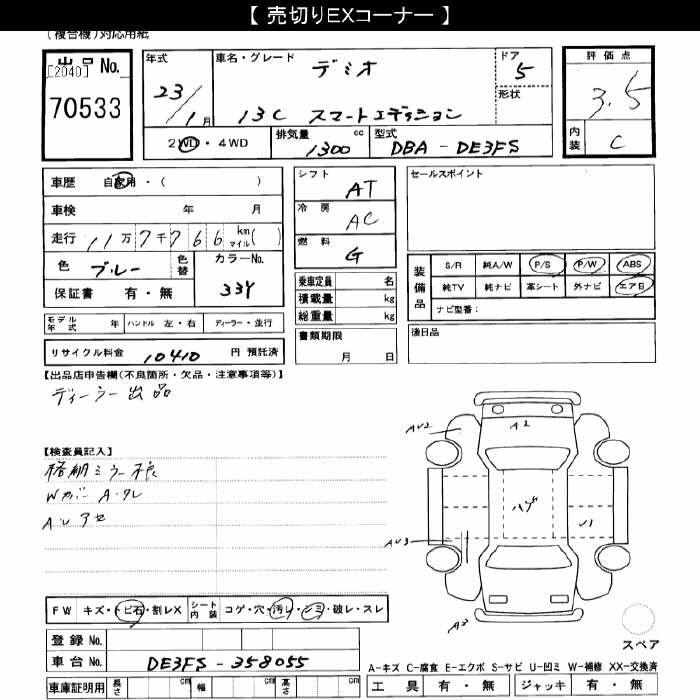 【 売切りEXコーナー 】
(複合機)対応用紙
出品 No.
[2040]
70533
年式
23/1月
車名・グレード
デミオ
13C スマートエディション
ドア
5
形状
評価点
3.5
内装
C
2WD・4WD
排気量 1300 cc
型式 DBA - DE3FS
車歴 自家用・( )
車検 年 月
走行 11万7千766 km マイル( )
色 ブルー 色替 カラーNo.
保証書 有・無 33Y
シフト AT
冷房 AC
燃料 G
乗車定員 名
積載量 kg
総重量 kg
書類期限
月 日
セールスポイント
装備品
S/R 純A/W P/S P/W ABS
純TV 純ナビ 革シート 外ナビ エアB
ナビ型番：
後日品
モデル年式 年 ハンドル 左・右 ディーラー・並行
リサイクル料金 10410 円 預託済
【出品店申告欄(不良箇所・欠品・注意事項等)】
ディーラー出品
【検査員記入】
格納ミラー不良
Wカバー A・ワレ
AUアセ
AU2
A2
ハゲ
AU3
A3
FW キズ・トビ石・割レX シート内装 コゲ・穴・汚レ・シミ・破レ・スレ
登録 No.
車台 No. DE3FS - 358055
車庫証明用 長さ cm 幅 cm 高さ cm
スペア
A-キズ C-腐食 E-エクボ S-サビ U-凹ミ W-補修 XX-交換済
工具 有・無 ジャッキ 有・無